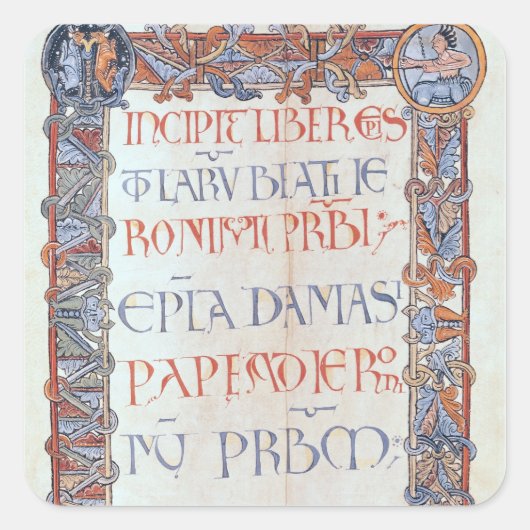 INCIPIT LIBER EPI
STLARV BEATI IE
RONIMI PRBI;
EPLA DAMASI
PAPE AD IERONI
MV PRBM;